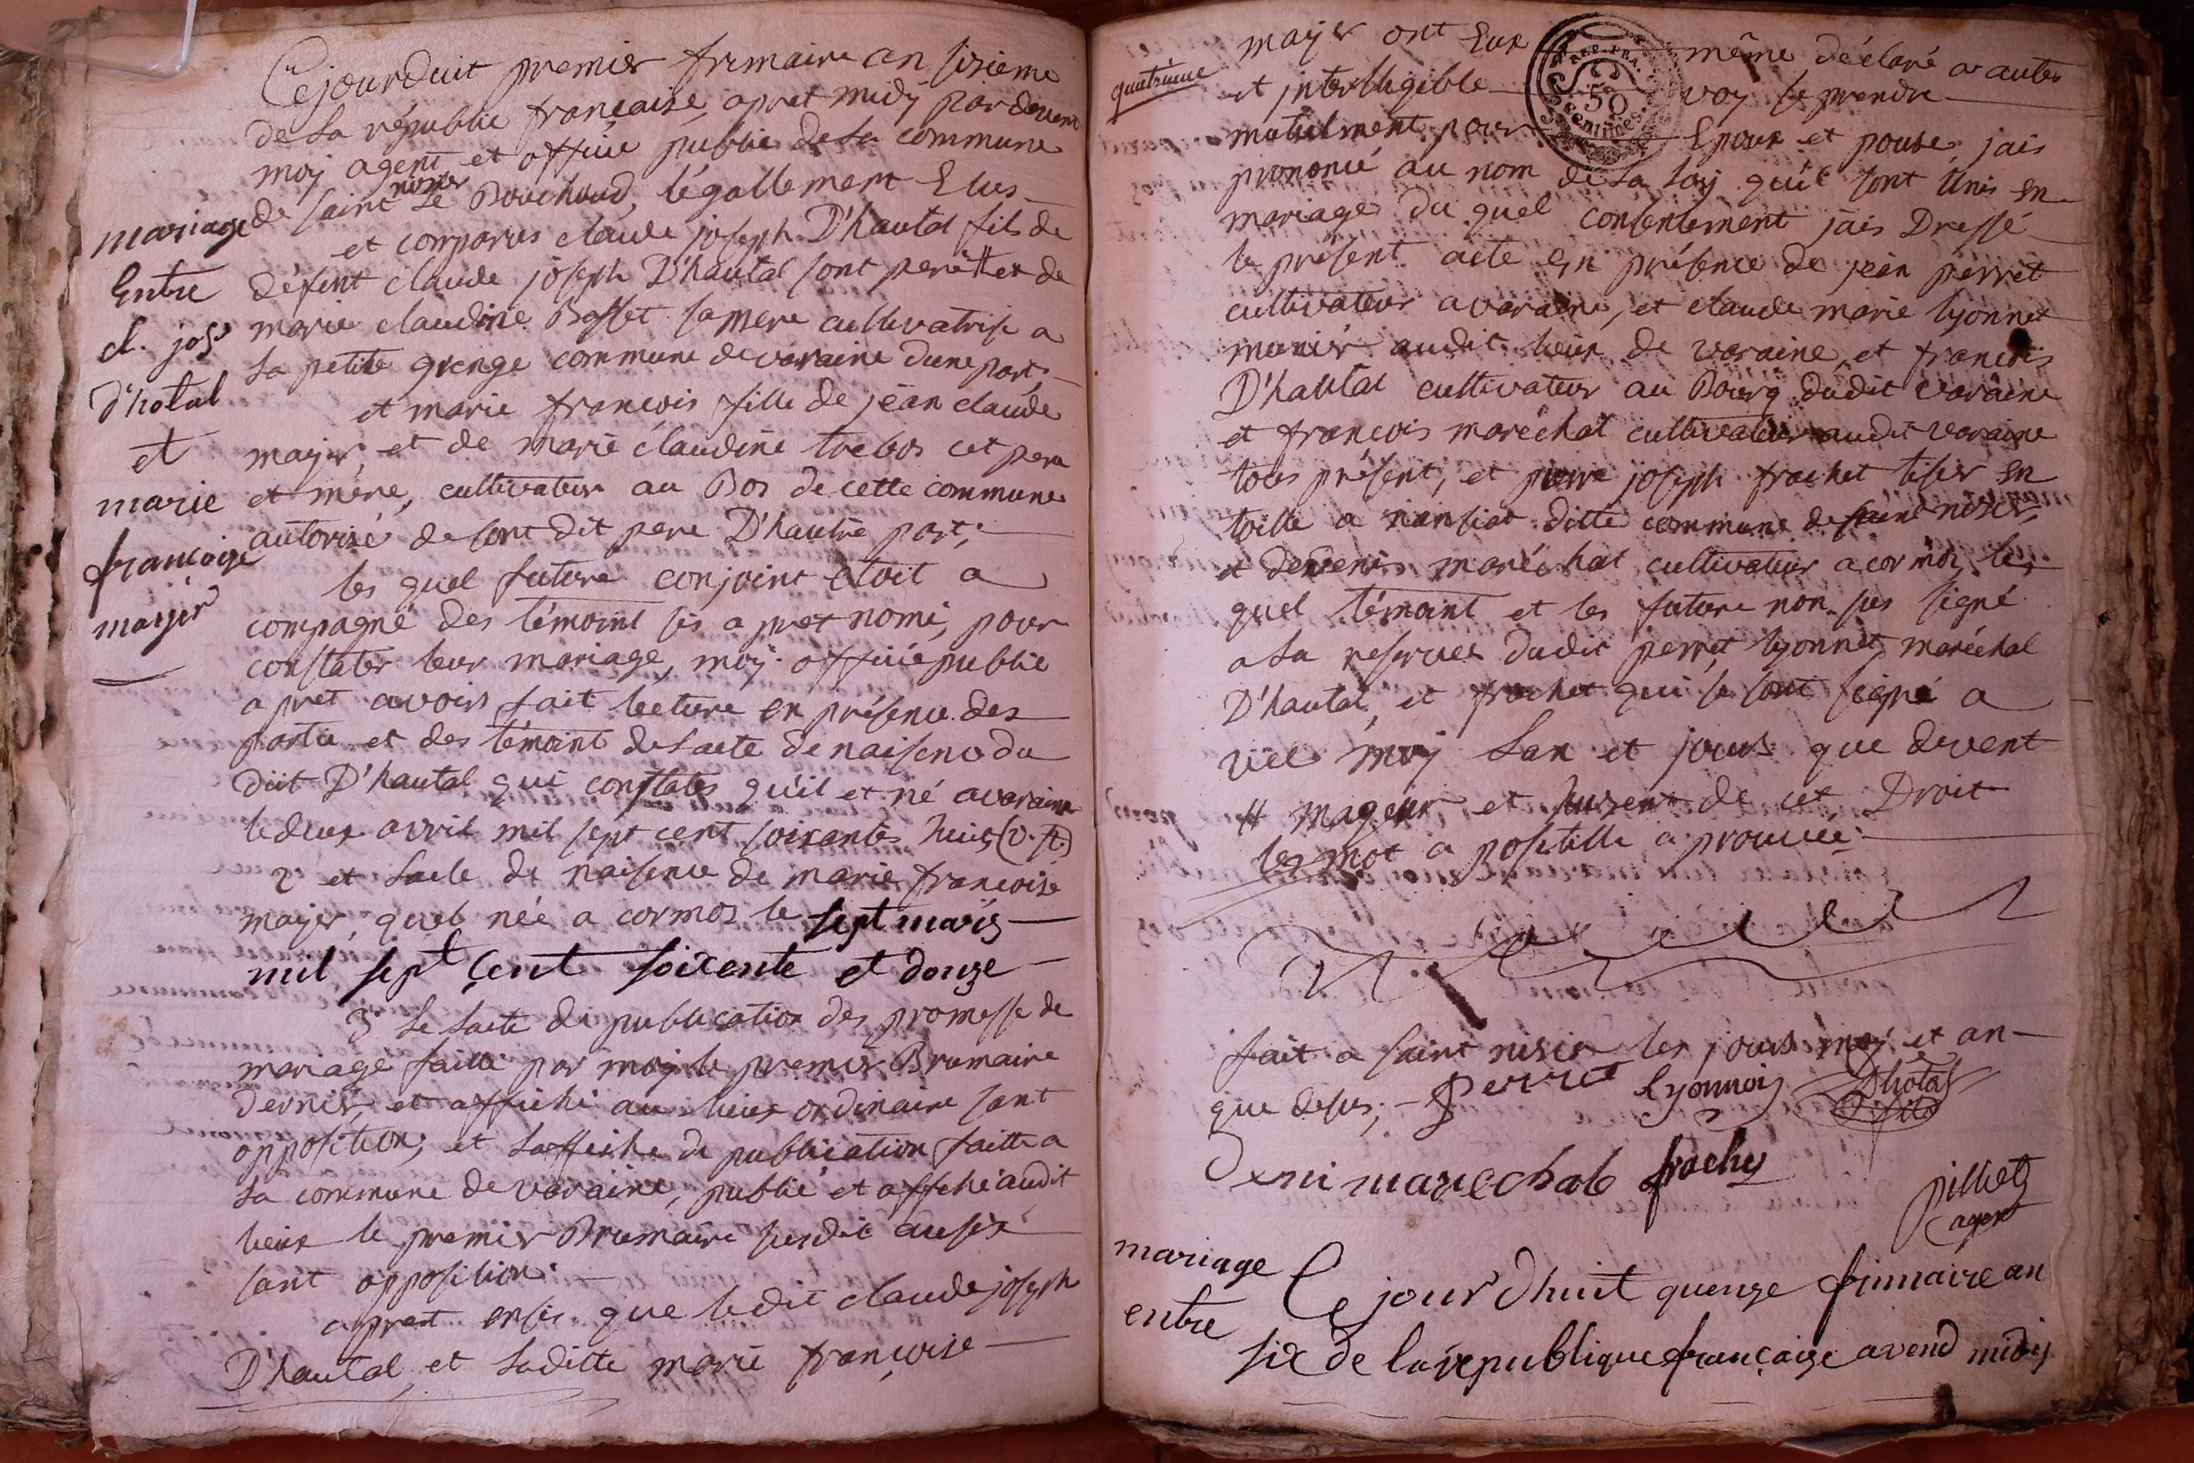 Cejourduit premier frimaire an sixieme
de la républic française, apret midy par devent
moy agent et office public de la commune
de saint nisier Le Bouchoud, légallement Elus
et comparus claude joseph D'hautal fils de
défint claude joseph D'hautal sont pere # et de
marie claudine Basset sa mere cultivatrise a
la petite grenge commune de varaine dune part,
et marie francois fille de jean claude
mayer, et de marie claudine trebos cet pere
et mere, cultivateur au Bos de cette commune
autorisé de sont dit pere D'hautre part,
les quel future conjoint etoit a
compagné des témoint sis apret nomé, pour
constater leur mariage, moy office public
apret avoir fait lecture en présence des
partie et des témoint de lacte de naisence du
dit D'hautal qui constates quil et né a varaine
le deux avril mil sept cent soixantes huit (v. st.)
2 et lacte de naisence de marie francoise
mayer, quel née a cormos le sept mars
mil sept cent soixente et douze
3 Le lacte de publication des promesse de
mariage faitte par moy le premier Brumaire
dernier, et affiché au lieux ordinaire sant
opposition, et laffiche de publication faitte a
la commune de varaine, publié et affiché audit
lieux le premier Brumaire susdit ausis
sant opposition.
apret ensis que ledit claude joseph
D'hautal, et laditte marie françoise
mariage
Entre
cl. jos.
D'hotal
et
marie
francoise
mayer
quatrieme
mayer ont Eux même déclaré a autes
et intelligible voy se prendre
mutuelment pour Epoux et pouse, jais
prononcé au nom de la loy quil sont Unis en
mariage du quel consentement jais Dressé
le présent acte en présence de jean perret
cultivateur a varaine, et claude marie lyonnet
munier audit lieux de varaine, et francois
D'hautal cultivateur au Bourg dudit varaine
et francois maréchal cultivateur audit varaine
tous présent, et pierre joseph frachet tisier en
toille a nansiat ditte commune de saint nisier,
et denis maréchal cultivateur a cormos, les
quel témoint et les future non sus signé
a la reserves dudit perret, lyonnet, maréchal
D'hautal, et frachet qui se sont signé a
viec moy Lan et jours que devent
# mageur et jusent de cet Droit
les mot a postille a prouvée.
fait a saint nisier les jours moy et an
que desus, perret Lyonnois Dhotal
fils
Deni marechale frachet
pilliet
agent
mariage
entre
Ce jour dhuit quenze frimaire an
six de la republique française avend midy
50
centimes